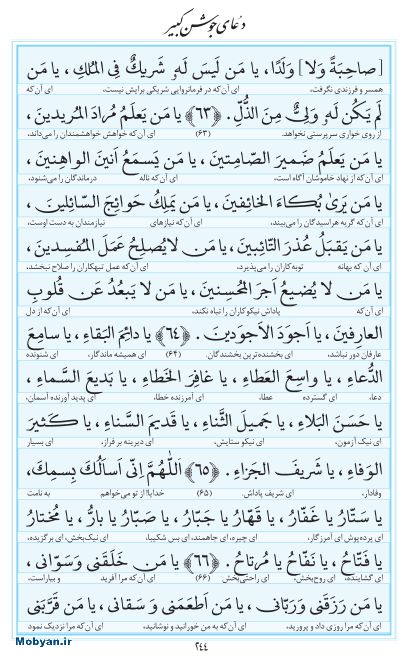 دعای جوشن کبیر
[صاحِبَةً وَلا] وَلَدًا، یا مَن لَیسَ لَهُ شَریكٌ فِی المُلكِ، یا مَن
همسر و فرزندی نگرفت، ای آن‌که در فرمانروایی شریکی برایش نیست، ای آن‌که
لَم یَکُن لَهُ وَلِیٌّ مِنَ الذُّلِّ. ﴿٦٣﴾ یا مَن یَعلَمُ مُرادَ المُریدینَ،
از روی خواری سرپرستی نخواهد. (۶۳) ای آن‌که خواهش خواهشمندان را می‌داند،
یا مَن یَعلَمُ ضَمیرَ الصّامِتینَ، یا مَن یَسمَعُ اَنینَ الواهِنینَ،
ای آن‌که از نهاد خاموشان آگاه است، ای آن‌که ناله درماندگان را می‌شنود،
یا مَن یَریٰ بُکاءَ الخائِفینَ، یا مَن یَملِكُ حَوائِجَ السّائِلینَ،
ای آن‌که گریه هراسیدگان را می‌بیند، ای آن‌که نیازهای نیازمندان به دست اوست،
یا مَن یَقبَلُ عُذرَ التّائِبینَ، یا مَن لایُصلِحُ عَمَلَ المُفسِدینَ،
ای آن‌که بهانه توبه‌کاران را می‌پذیرد، ای آن‌که عمل تبهکاران را صلاح نبخشد،
یا مَن لا یُضیعُ اَجرَ المُحسِنینَ، یا مَن لا یَبعُدُ عَن قُلوبِ
ای آن‌که پاداش نیکوکاران را تباه نکند، ای آن‌که از دل
العارِفینَ، یا اَجوَدَ الاَجوَدینَ. ﴿٦٤﴾ یا دائِمَ البَقاءِ، یا سامِعَ
عارفان دور نباشد، ای بخشنده‌ترین بخشندگان. (۶۴) ای همیشه ماندگار، ای شنونده
الدُّعاءِ، یا واسِعَ العَطاءِ، یا غافِرَ الخَطاءِ، یا بَدیعَ السَّماءِ،
دعا، ای گسترده عطا، ای آمرزنده خطا، ای پدید آورنده آسمان،
یا حَسَنَ البَلاءِ، یا جَمیلَ الثَّناءِ، یا قَدیمَ السَّناءِ، یا کَثیرَ
ای نیک آزمون، ای نیکو ستایش، ای دیرینه بر فراز، ای بسیار
الوَفاءِ، یا شَریفَ الجَزاءِ. ﴿٦٥﴾ اَللّٰهُمَّ اِنّی اَسأَلُكَ بِسمِكَ،
وفادار، ای شریف پاداش. (۶۵) خدایا! از تو می‌خواهم به نامت
یا سَتّارُ یا غَفّارُ، یا قَهّارُ یا جَبّارُ، یا صَبّارُ یا بارُّ، یا مُختارُ
ای پرده‌پوش ای آمرزگار، ای چیره، ای جاهمند، ای بس شکیبا، ای نیک‌بخش، ای برگزیده،
یا فَتّاحُ، یا نَفّاحُ یا مُرتاحُ. ﴿٦٦﴾ یا مَن خَلَقَنی وَسَوّانی،
ای گشاینده، ای روح‌بخش، ای راحتی‌بخش. (۶۶) ای آن‌که مرا آفرید و بیاراست،
یا مَن رَزَقَنی وَرَبّانی، یا مَن اَطعَمَنی وَ سَقانی، یا مَن قَرَّبَنی
ای آن‌که مرا روزی داد و پرورید، ای آن‌که به من خورانید و نوشانید، ای آن‌که مرا نزدیک نمود
Mobyan.ir
٢٤٤